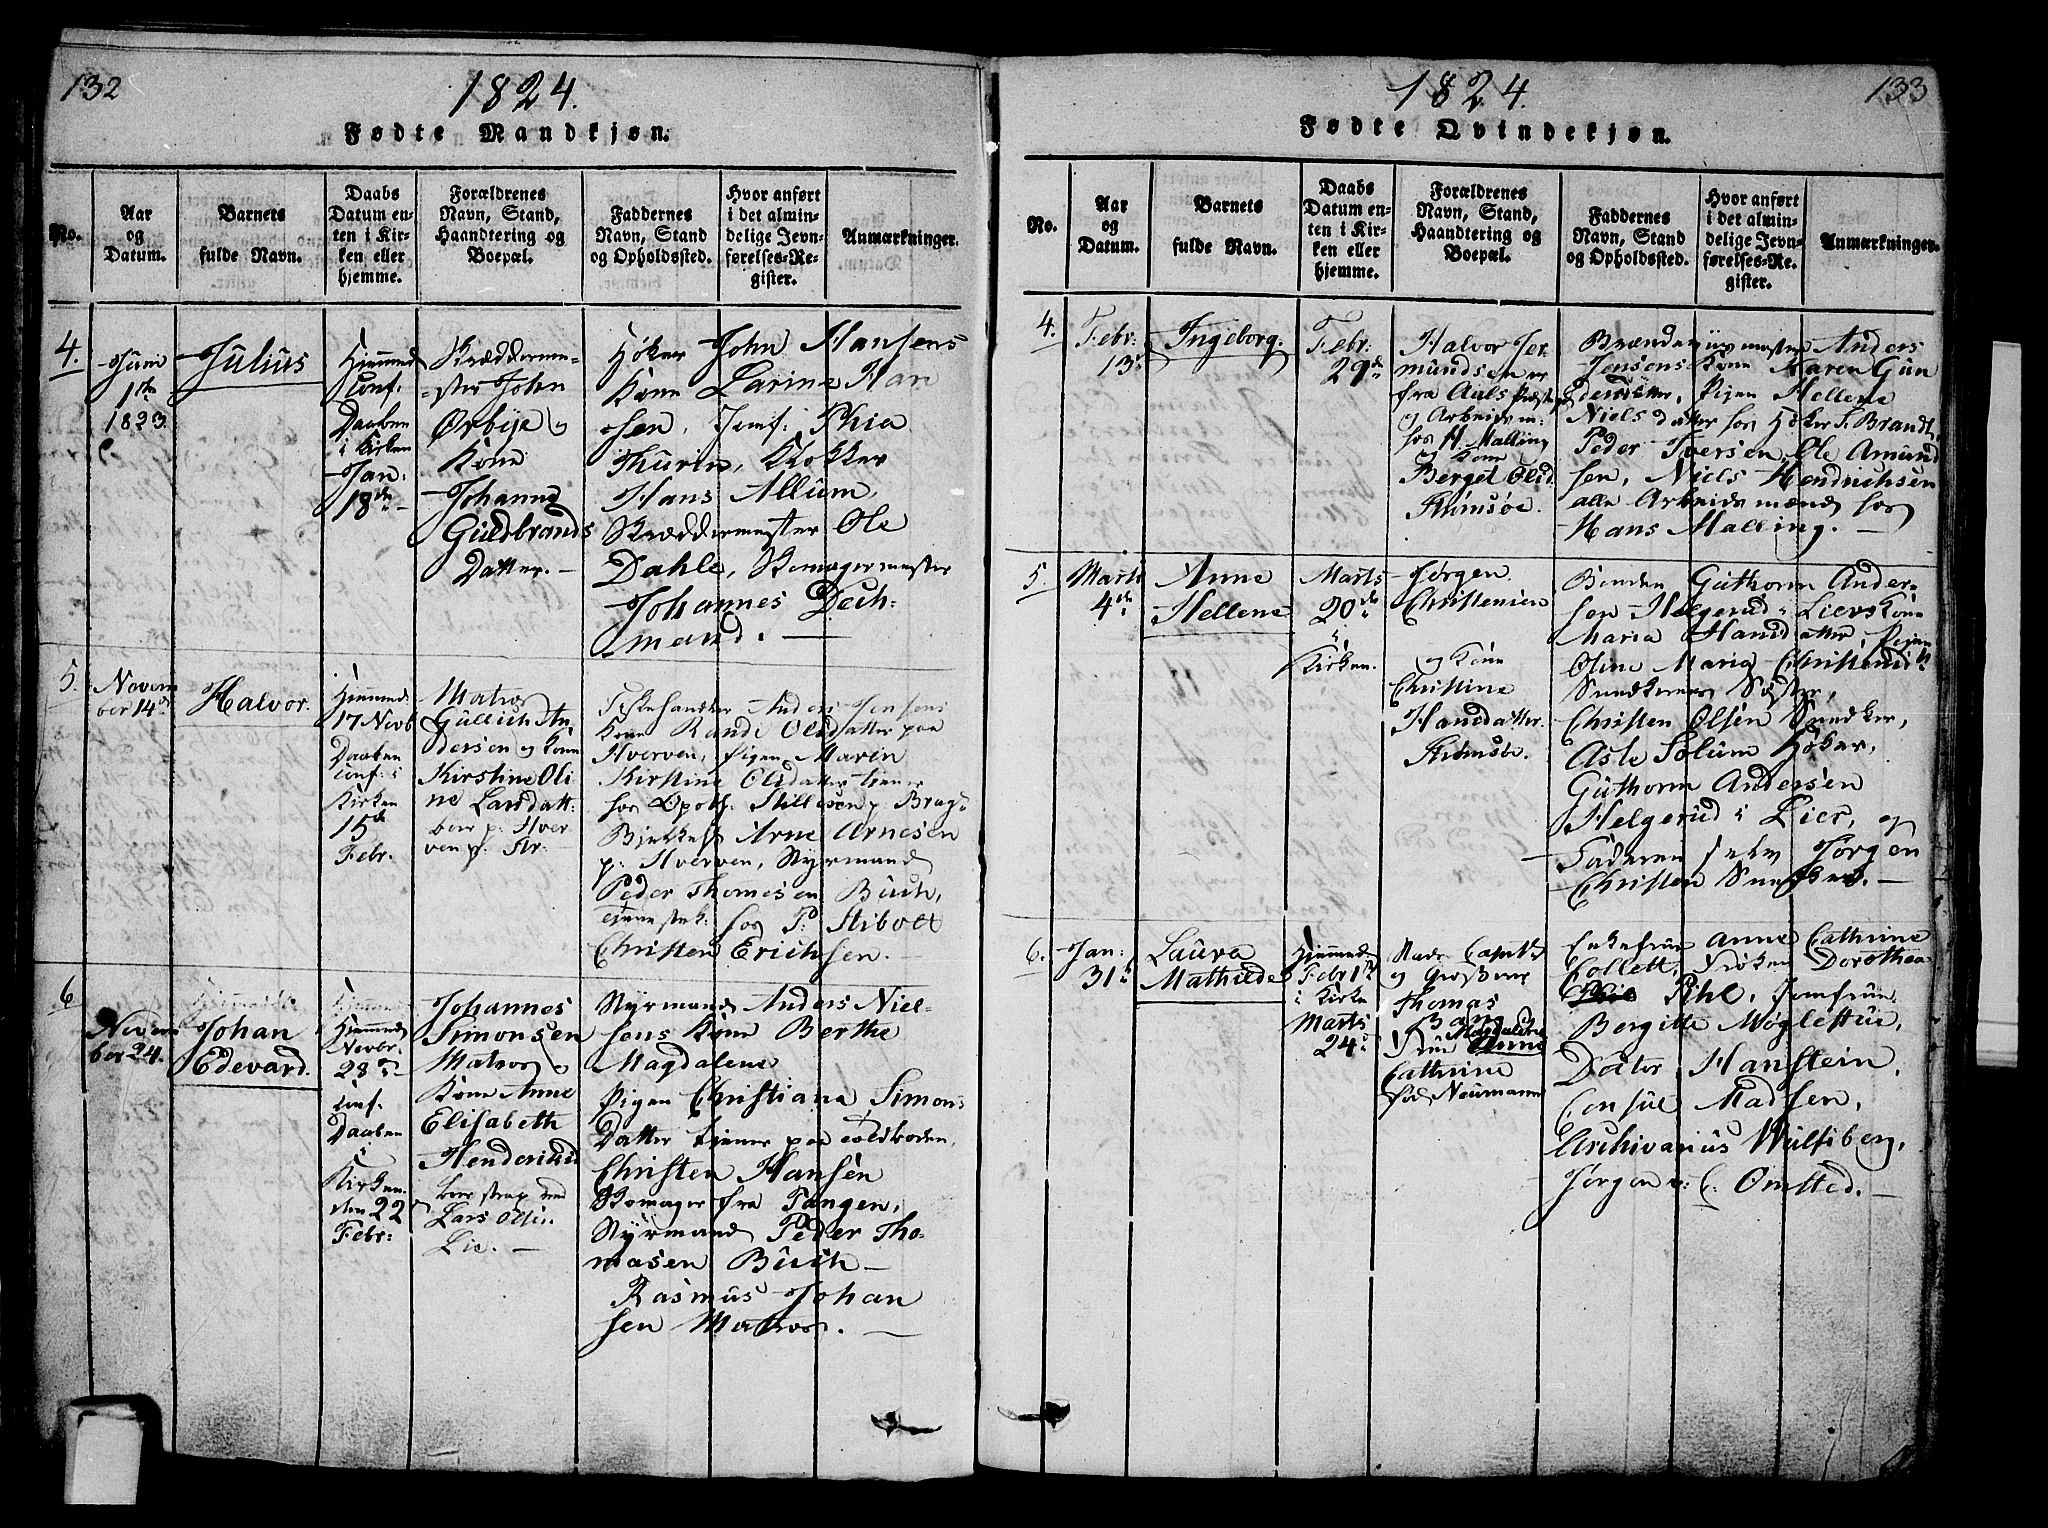 132
1824.
Fødte Mandkjøn.
No.
Aar
og
Datum.
Barnets
fulde Navn.
Daabs
Datum en-
ten i Kir-
ken eller
hjemme.
Forældrenes
Navn, Stand,
Haandtering og
Boepæl.
Faddernes
Navn, Stand
og Opholdssted.
Hvor anført
i det almin-
delige Jevn-
førelses-Re-
gister.
Anmærkninger.
4.
Juni
1ste
1823.
Julius
Hjemmed
Conf:
Daaben
i Kirken
Jan:
18de
Skræddermes-
ster John
Ørbye og
Kone
Johanne
Guldbrands
Datter.
Høker John Hansens
Kone Larine Han
sen, Jomf: Phia
Thurin, Klokker
Hans Allum,
Skræddermester Ole
Dahle, Skomagermester
Johannes Dech-
mand.
5.
Novem
ber 14de
Halvor.
Hjemmed
17 Novb
Daaben
Conf: i
Kirken
15de
Febr.
Matros
Gullich An
dersen og Kone
Kirstine Oli
ne Larsdatt:
boer p: Hver
ven p: Str.
Fiskehandler Anders Jensens
Kone Rande Olsdatter paa
Hverven, Pigen Maren
Kirstine Olsdatter tjener
hos Apoth: Stillesen p: Brags
Arne Arnesen
p: Hverven, Styrmand
Peder Thomesen Buch,
hos P: Stibolt
Christen Erichsen.
6
Novem
ber 24.
Johan
Edevard.
Hjemmed
Novbr.
28de
Conf.
Daaben
i
Kirken
den 22
Febr:
Johannes
Simonsen
Matros og
Kone Anne
Elisabeth
Hendriksd
Lars Olsen
Lie.
Styrmand Anders Niel-
sens Kone Berthe
Magdalene
Pigen Christiana Simons
Datter tjener paa Toldboden,
Christen Hansen
Skomager fra Tangen,
Styrmand Peder Tho-
masen Buch
Rasmus Johan
sen Matros.
1824.
133
Fødte Qvindekjøn.
No.
Aar
og
Datum.
Barnets
fulde Navn.
Daabs
Datum en-
ten i Kir-
ken eller
hjemme.
Forældrenes
Navn, Stand,
Haandtering og
Boepæl.
Faddernes
Navn, Stand
og Opholdssted.
Hvor anført
i det almin-
delige Jevn-
førelses-Re-
gister.
Anmærkninger.
4.
Febr:
13de
Ingeborg.
Febr:
29de
Halvor Jer
mundsen er
fra Aals Præstegd
og Arbeidsm:
hos H Malling
og Kone
Berget Olsd.
Strømsøe.
Brændeviinsmester Anders
Jensens Kone Karen Gun
dersdatter, Pigen Hellene
Nielsdatter hos Høker J. Brandt,
Peder Iversen, Ole Amund
sen, Niels Hendrichsen
alle Arbeidsmænd hos
Hans Malling.
5.
Marts
4de
Anne
Hellene
Marts
20de
i
Kirken.
Jørgen
Christensen
og Kone
Christine
Hansdatter
Strømsøe.
Bonden Guthorm Ander-
sen Helgerud i Liers Kone
Maria Hansdatter, Pigen
Oline Maria Christensd
Snedkerens Søster,
Christen Olsen Snedker,
Asle Solum Høker,
Guthorm Andersen
Helgerud i Lier, og
Faderen selv Jørgen
Christen Snedker.
6.
Jan:
31te
Laura
Mathilde
Hjemmed
Febr 1ste
i Kirke
Marts
24de
Stads Capt:
og Grosserer
Thomas
Bang og
Frue Magdalene
Cathrine
fød Neumann
Enkefrue Anne Cathrine
Collett, Frøken Dorothea
Pihl, Jomfrue
Bergitte Møglestue,
Doctor Hanstein,
Consul Madsen,
Archivarius Wulfsberg,
Jørgen v: C: Omsted.